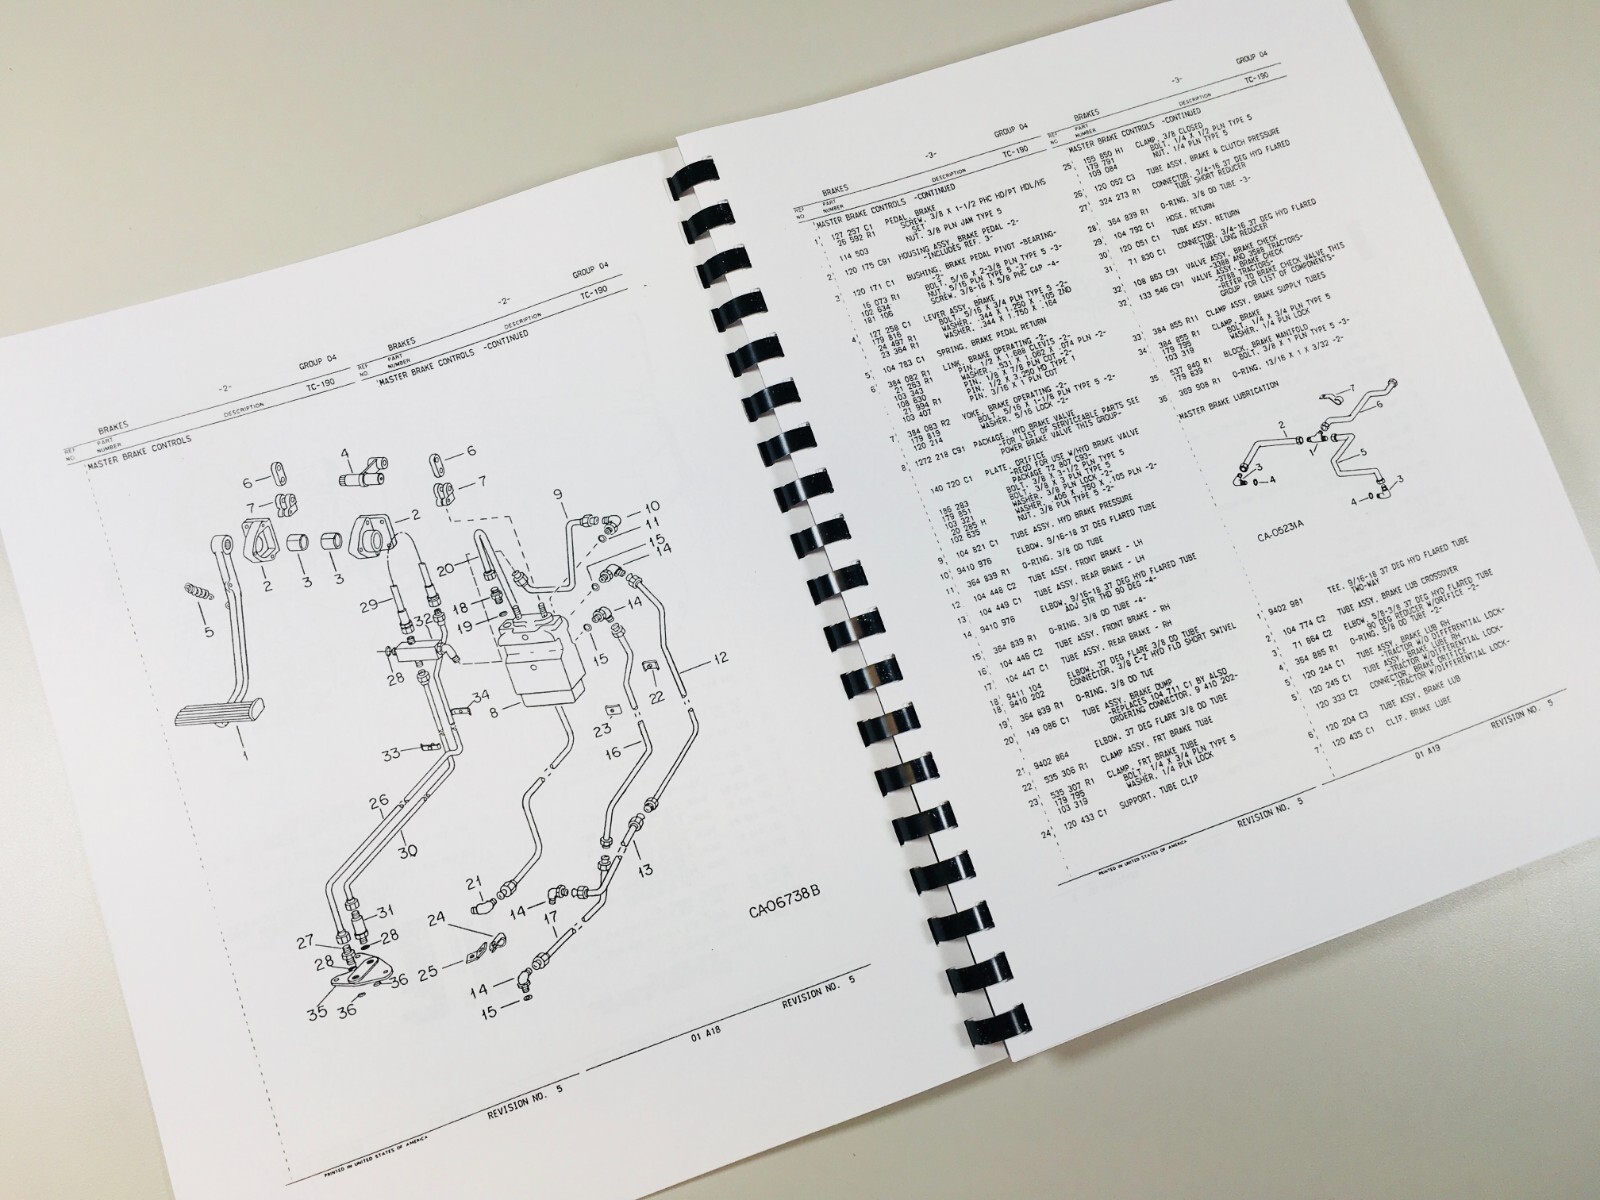 -2-
GROUP 04
BRAKES
TC-190
REF NO.
PART NUMBER
DESCRIPTION
MASTER BRAKE CONTROLS
-2-
GROUP 04
BRAKES
TC-190
REF NO.
PART NUMBER
DESCRIPTION
MASTER BRAKE CONTROLS -CONTINUED
6
4
6
7
7
2
9
10
11
15
14
2
3
3
20
29
18
19
32
14
15
5
28
12
22
34
8
23
16
33
1
26
30
13
21
14
17
24
31
27
28
28
25
36
14
15
35
36
CA-06738B
01 A18
REVISION NO. 5
REVISION NO. 5
PRINTED IN UNITED STATES OF AMERICA
-3-
GROUP 04
BRAKES
TC-190
REF NO.
PART NUMBER
DESCRIPTION
MASTER BRAKE CONTROLS -CONTINUED
1 127 257 C1 PEDAL, BRAKE
26 592 R1 SCREW, 3/8 X 1-1/2 PHC HD/PT HDL/HS
SET
114 503 NUT, 3/8 PLN JAM TYPE 5
2 120 175 C91 HOUSING ASSY, BRAKE PEDAL -2-
-INCLUDES REF. 3-
3 120 171 C1 BUSHING, BRAKE PEDAL PIVOT -BEARING-
-2-
16 073 R1 BOLT, 5/16 X 2-3/8 PLN TYPE 5 -3-
102 634 NUT, 5/16 PLN TYPE 5 -3-
181 106 SCREW, 3/8-16 X 5/8 PHC CAP -4-
4 127 258 C1 LEVER ASSY, BRAKE
179 816 BOLT, 5/16 X 3/4 PLN TYPE 5 -2-
24 497 R1 WASHER, .344 X 1.250 X .105 2ND
23 364 R1 WASHER, .344 X 1.750 X .164
5 104 783 C1 SPRING, BRAKE PEDAL RETURN
6 384 082 R1 LINK, BRAKE OPERATING -2-
PIN, 1/2 X 1.688 CLEVIS -2-
WASHER, .531 X 1.062 X .074 PLN -2-
103 343 PIN, 1/8 X 7/8 PLN COT -2-
108 630 PIN, 1/2 X 3.250 HD TYPE-1
21 994 R1 PIN, 3/16 X 1 PLN COT
103 407
7 384 083 R2 YOKE, BRAKE OPERATING -2-
179 819 BOLT, 5/16 X 1-1/8 PLN TYPE 5 -2-
120 214 WASHER, 5/16 LOCK -2-
8 1272 218 C91 PACKAGE, HYD BRAKE VALVE
-FOR LIST OF SERVICEABLE PARTS SEE
POWER BRAKE VALVE THIS GROUP-
140 720 C1 PLATE, ORIFICE
-REQD FOR USE W/HYD BRAKE VALVE
PACKAGE 72 807 C93-
186 283 BOLT, 3/8 X 3-1/2 PLN TYPE 5
179 851 BOLT, 3/8 X 3 PLN TYPE 5
103 321 WASHER, 3/8 PLN LOCK -2-
20 285 H WASHER, .406 X .750 X .105 PLN -2-
102 635 NUT, 3/8 PLN TYPE 5 -2-
9 104 821 C1 TUBE ASSY, HYD BRAKE PRESSURE
10 9410 976 ELBOW, 9/16-18 37 DEG FLARED TUBE
11 364 839 R1 O-RING, 3/8 OD TUBE
12 104 448 C2 TUBE ASSY, FRONT BRAKE - LH
13 104 449 C1 TUBE ASSY, REAR BRAKE - LH
14 9410 976 ELBOW, 9/16-18 37 DEG HYD FLARED TUBE
ADJ STR THD 90 DEG -4-
15 364 839 R1 O-RING, 3/8 OD TUBE -4-
16 104 446 C2 TUBE ASSY, FRONT BRAKE - RH
17 104 447 C1 TUBE ASSY, REAR BRAKE - RH
18 9411 104 ELBOW, 37 DEG FLARE 3/8 OD TUBE
18 9410 202 CONNECTOR, 3/8 C-Z HYD FLD SHORT SWIVEL
19 364 839 R1 O-RING, 3/8 OD TUE
20 149 086 C1 TUBE ASSY, BRAKE DUMP
-REPLACES 104 711 C1 BY ALSO
ORDERING CONNECTOR, 9 410 202-
21 9402 864 ELBOW, 37 DEG FLARE 3/8 OD TUBE
22 535 306 R1 CLAMP ASSY, FRT BRAKE TUBE
23 535 307 R1 CLAMP, FRT BRAKE TUBE
179 795 BOLT, 1/4 X 3/4 PLN TYPE 5
103 319 WASHER, 1/4 PLN LOCK
24 120 433 C1 SUPPORT, TUBE CLIP
PRINTED IN UNITED STATES OF AMERICA
REVISION NO. 5
-3-
GROUP 04
BRAKES
TC-190
REF NO.
PART NUMBER
DESCRIPTION
MASTER BRAKE CONTROLS -CONTINUED
25 155 850 H1 CLAMP, 3/8 CLOSED
179 791 BOLT, 1/4 X 1/2 PLN TYPE 5
109 084 NUT, 1/4 PLN TYPE 5
26 120 052 C3 TUBE ASSY, BRAKE & CLUTCH PRESSURE
27 324 273 R1 CONNECTOR, 3/4-16 37 DEG HYD FLARED
TUBE SHORT REDUCER
28 364 839 R1 O-RING, 3/8 OD TUBE -3-
29 104 792 C1 HOSE, RETURN
30 120 051 C1 TUBE ASSY, RETURN
31 71 830 C1 CONNECTOR, 3/4-16 37 DEG HYD FLARED
TUBE LONG REDUCER
32 108 863 C91 VALVE ASSY, BRAKE CHECK
-3388 AND 3588 TRACTORS-
32 133 546 C91 VALVE ASSY, BRAKE CHECK
-3788 TRACTORS-
-REFER TO BRAKE CHECK VALVE THIS
GROUP FOR LIST OF COMPONENTS-
33 384 855 R11 CLAMP ASSY, BRAKE SUPPLY TUBES
34 384 855 R1 CLAMP, BRAKE
179 795 BOLT, 1/4 X 3/4 PLN TYPE 5
103 319 WASHER, 1/4 PLN LOCK
35 537 840 R1 BLOCK, BRAKE MANIFOLD
179 839 BOLT, 3/8 X 1 PLN TYPE 5 -3-
36 369 908 R1 O-RING, 13/16 X 1 X 3/32 -2-
MASTER BRAKE LUBRICATION
7
6
2
1
5
3
4
3
4
CA-05231A
1 9402 981 TEE, 9/16-18 37 DEG HYD FLARED TUBE
TWO-WAY
2 104 774 C2 TUBE ASSY, BRAKE LUB CROSSOVER
3 71 864 C2 ELBOW, 5/8-3/8 37 DEG HYD FLARED TUBE
90 DEG REDUCER W/ORIFICE -2-
4 364 885 R1 O-RING, 5/8 OD TUBE -2-
5 120 244 C1 TUBE ASSY, BRAKE LUB RH
-TRACTOR W/O DIFFERENTIAL LOCK-
5 120 245 C1 TUBE ASSY, BRAKE LUB RH
-TRACTOR W/DIFFERENTIAL LOCK-
120 333 C2 CONNECTOR, BRAKE ORIFICE
-TRACTOR W/DIFFERENTIAL LOCK-
6 120 204 C3 TUBE ASSY, BRAKE LUB
7 120 435 C1 CLIP, BRAKE LUBE
01 A19
REVISION NO. 5